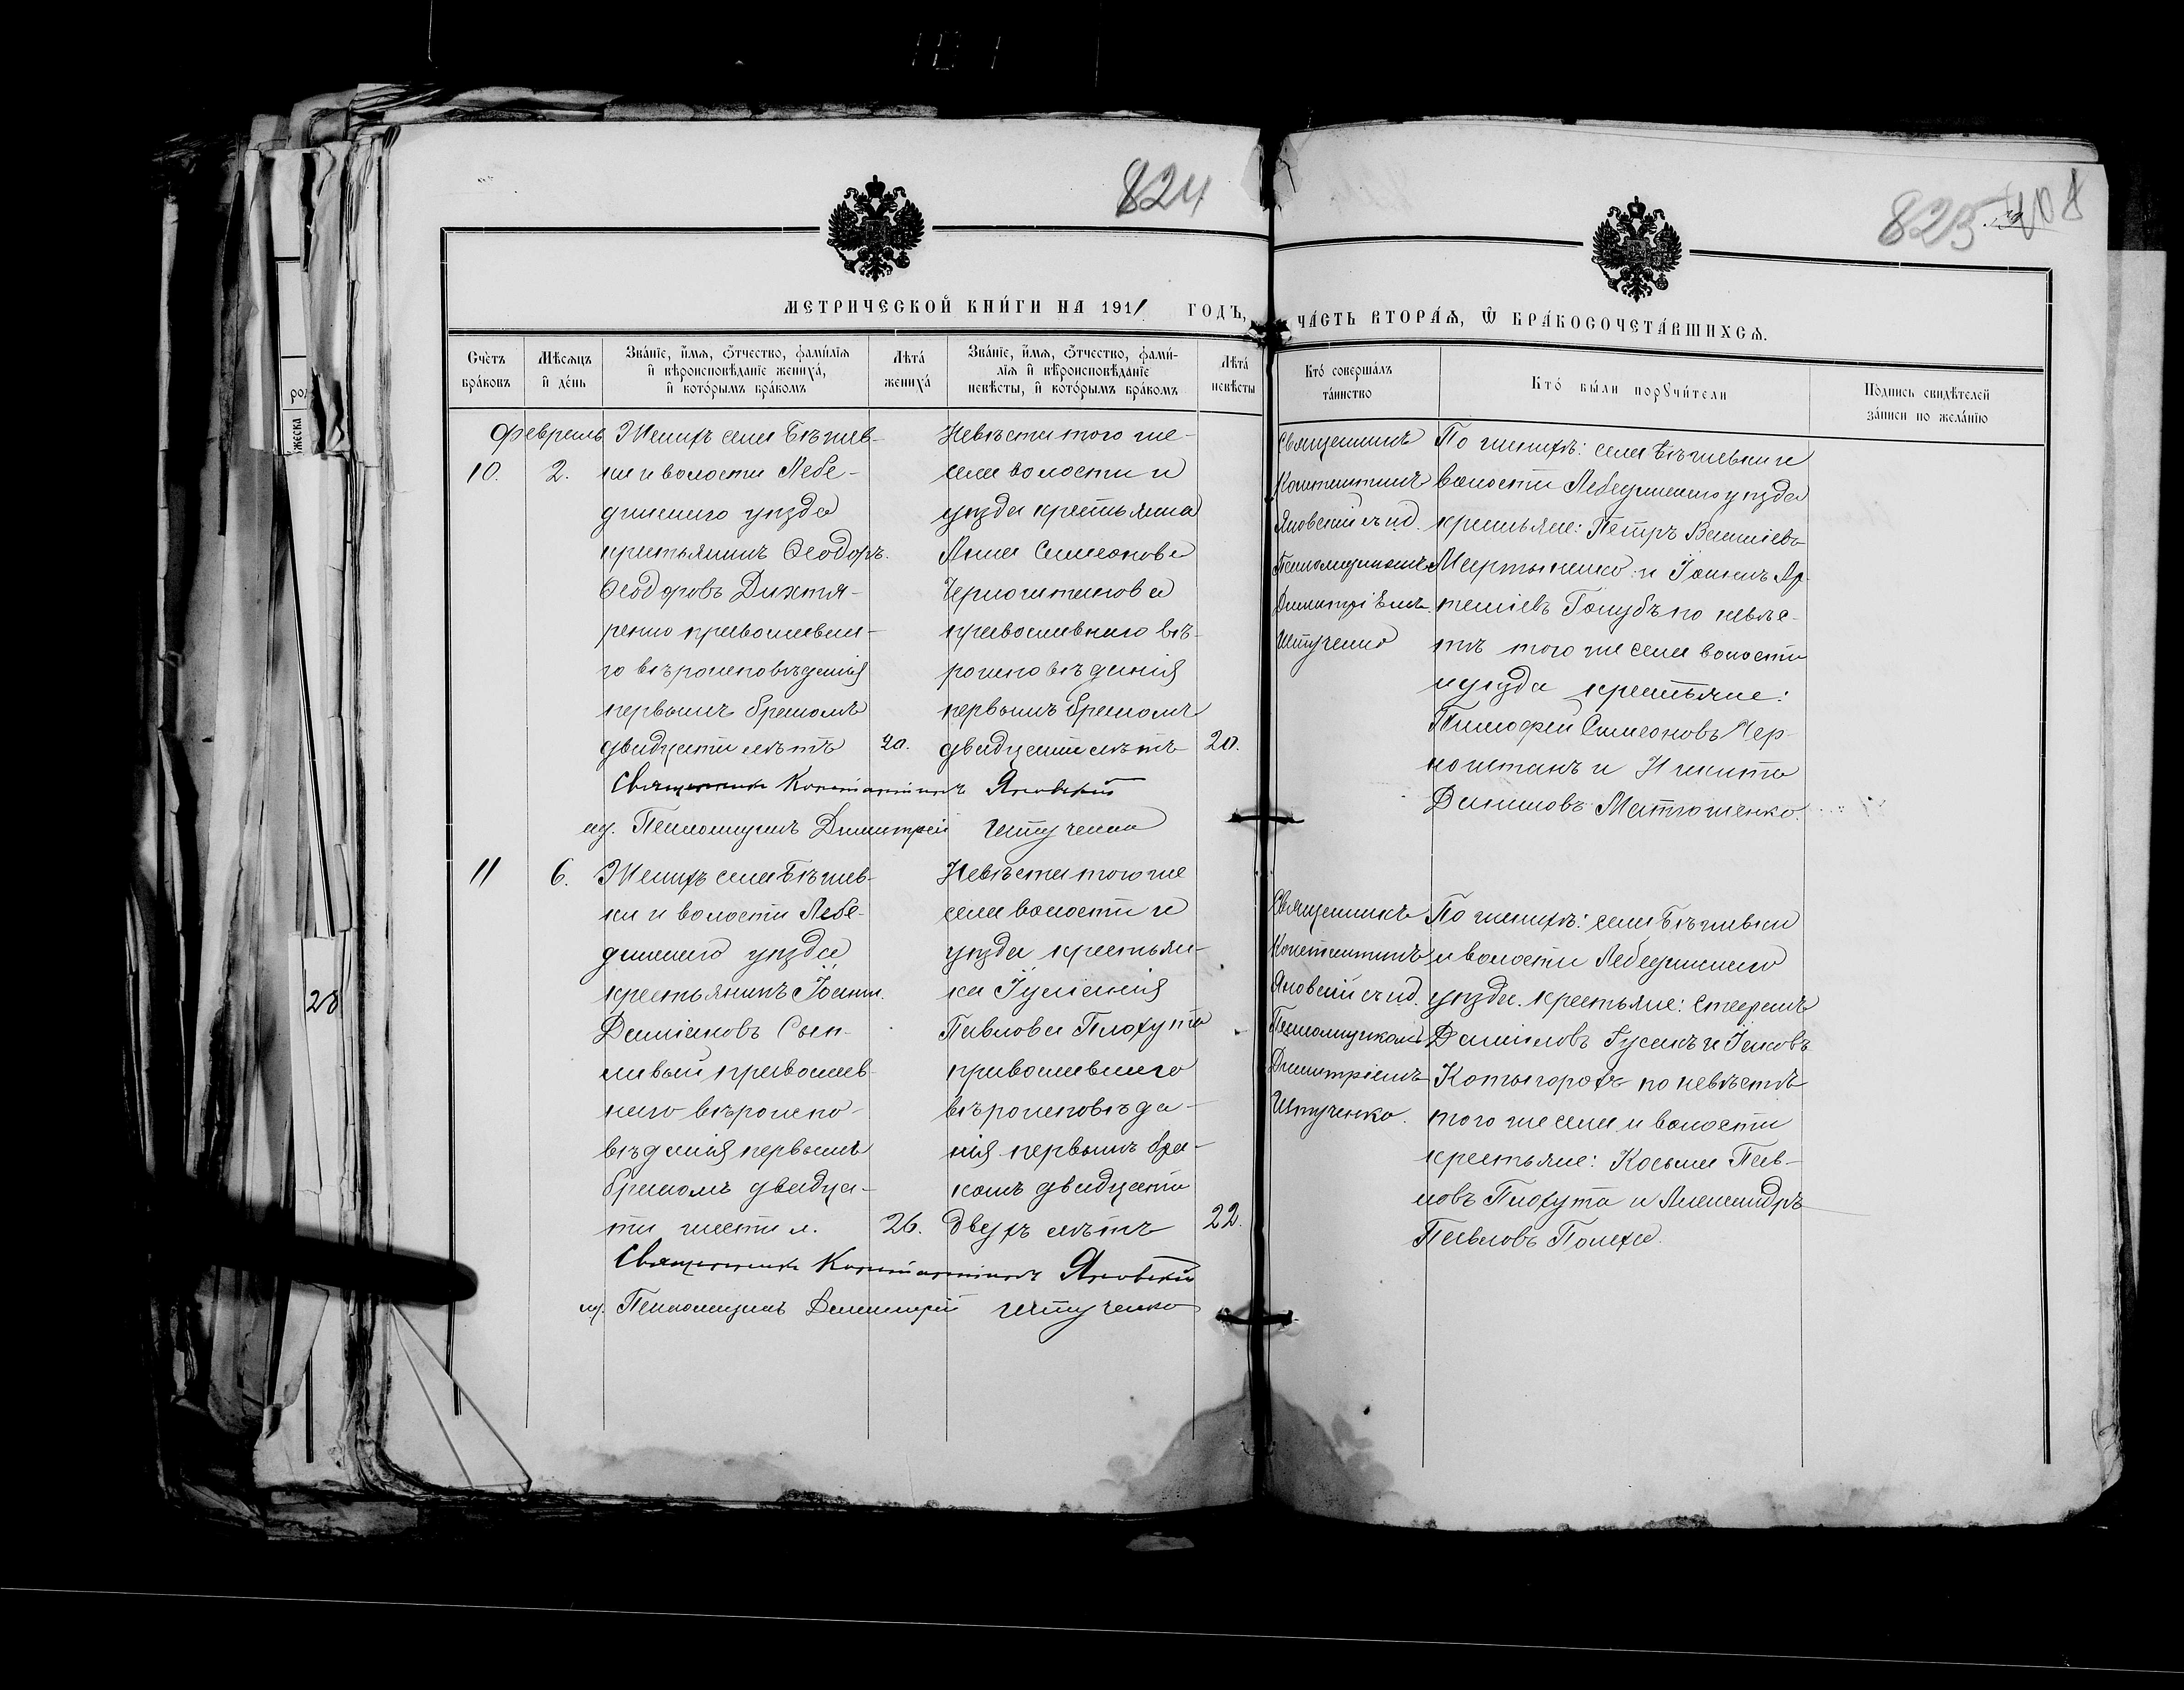 824
825
408
МЕТРИЧЕСКОЙ КНИ́ГИ НА 1911 ГОДЪ,
ЧА́СТЬ ВТОРА́Ѧ, Ѿ БРА́КОСОЧЕТА́ВШИХСѦ.
Сче́тъ бра́ковъ
Мѣ́сяцъ и де́нь
Зва́нїе, и́мѧ, о́тчество, фами́лїѧ и вѣроисповѣ́данїе жениха́, и кото́рымъ бра́комъ
Лѣта́ жениха́
Зва́нїе, и́мѧ, о́тчество, фами́лїѧ и вѣроисповѣ́данїе невѣ́сты, и кото́рымъ бра́комъ
Лѣта́ невѣ́сты
Кто́ соверша́лъ та́инство
Кто́ бы́ли порꙋчи́тели
По́дпись свидѣ́телей за́писи по жела́нїю
Февраль
10.
2.
Женихъ села Бѣжев-
ки и волости Лебе-
динскаго уѣзда
крестьянинъ Ѳеодоръ
Ѳеодоровъ Дихтя-
ренко православна-
го вѣроисповѣданія
первымъ бракомъ
двадцати лѣтъ
20.
Невѣста того же
села волости и
уѣзда крестьянка
Анна Симеонова
Черноштанова
православнаго вѣ-
роисповѣданія
первымъ бракомъ
двадцати лѣтъ
20.
Священникъ Константинъ Яновскій
ид. Псаломщика Димитрій Штученко
Священникъ
Константинъ
Яновскій съ ид.
Псаломщикомъ
Димитріемъ
Штученко
По женихѣ: села Бѣжевки и
волости Лебединскаго уѣзда
крестьяне: Петръ Василіевъ
Мартыненко и Іоаннъ Ар-
теміевъ Голубъ по невѣс-
тѣ того же села волости
и уѣзда крестьяне:
Тимофей Симеоновъ Чер-
ноштанъ и Никита
Даниловъ Матюшенко.
11
6.
Женихъ села Бѣжев-
ки и волости Лебе-
динскаго уѣзда
крестьянинъ Іоаннъ
Даміановъ Сып-
ливый православ-
наго вѣроиспо-
вѣданія первымъ
бракомъ двадца-
ти шести л.
26.
Невѣста того же
села волости и
уѣзда крестьян-
ка Іуліанія
Павлова Плохута
православнаго
вѣроисповѣда-
нія первымъ бра-
комъ двадцати
двухъ лѣтъ
22.
Священникъ Константинъ Яновскій
ид. Псаломщика Димитрій Штученко
Священникъ
Константинъ
Яновскій съ ид.
Псаломщикомъ
Димитріемъ
Штученко.
По женихѣ: села Бѣжевки
и волости Лебединскаго
уѣзда крестьяне: Стефанъ
Даніиловъ Гусакъ и Іаковъ
Котыгорохъ по невѣстѣ
того же села и волости
крестьяне: Косьма Пав-
ловъ Плохута и Александръ
Павловъ Полеха.
28